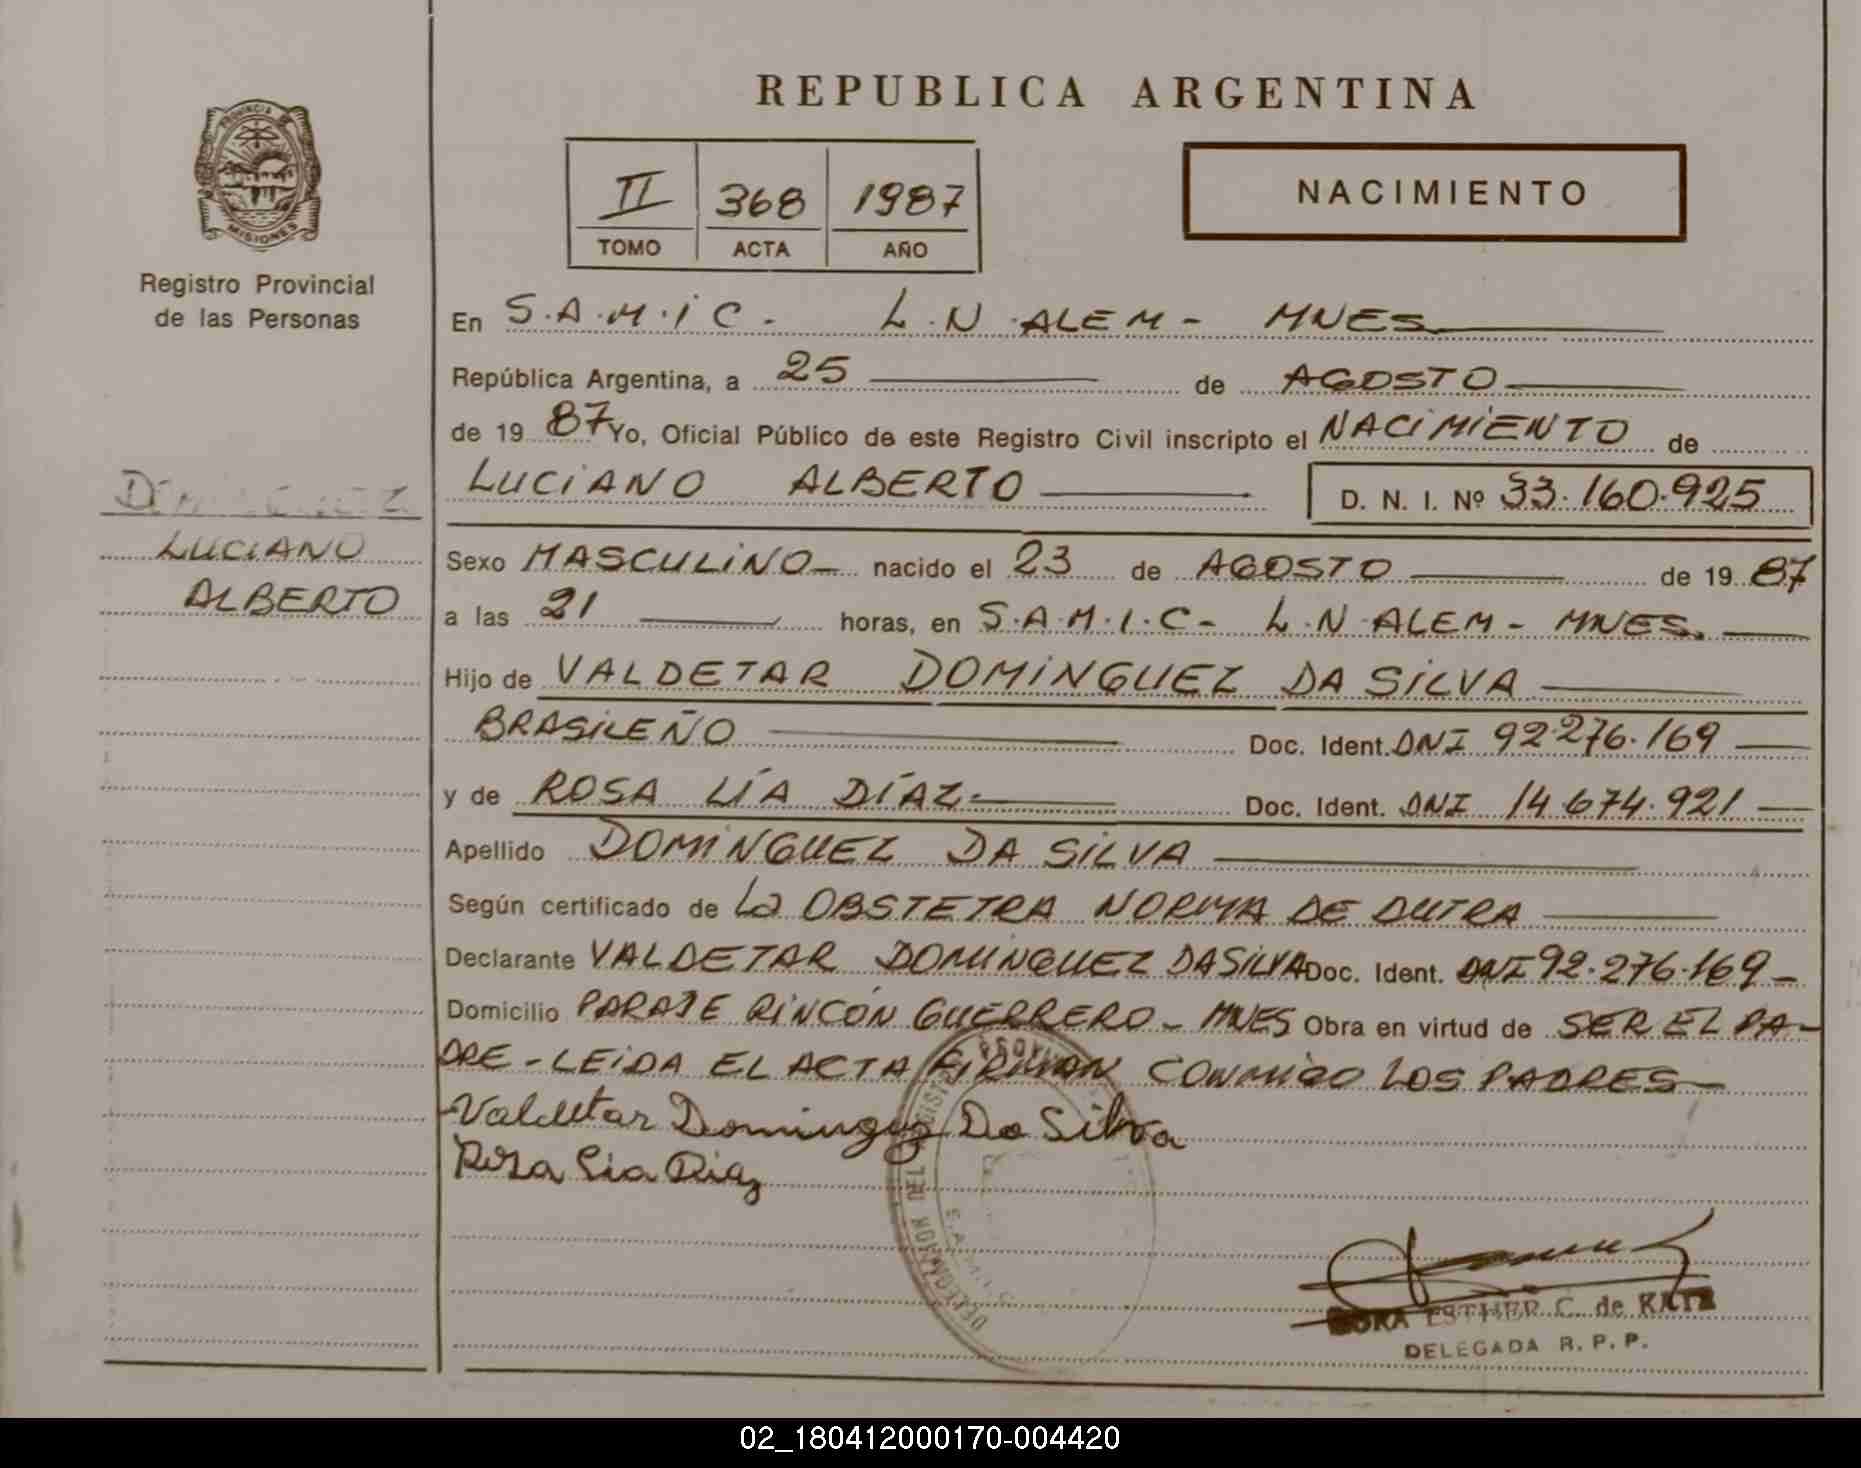 REPUBLICA ARGENTINA
PROVINCIA DE
MISIONES
Registro Provincial
de las Personas
II 368 1987
TOMO ACTA AÑO
NACIMIENTO
En S.A.M.I.C. - L.N. ALEM - MNES
República Argentina, a 25 de AGOSTO
de 19 87 Yo, Oficial Público de este Registro Civil inscripto el NACIMIENTO de
LUCIANO ALBERTO D. N. I. Nº 33.160.925
LUCIANO
ALBERTO
Sexo MASCULINO nacido el 23 de AGOSTO de 19 87
a las 21 horas, en S.A.M.I.C - L.N. ALEM - MNES.
Hijo de VALDETAR DOMINGUEZ DA SILVA
BRASILEÑO Doc. Ident. DNI 92.276.169
y de ROSA LÍA DÍAZ - Doc. Ident. DNI 14.674.921
Apellido DOMINGUEZ DA SILVA
Según certificado de La OBSTETRA NORMA DE DUTRA
Declarante VALDETAR DOMINGUEZ DA SILVA Doc. Ident. DNI 92.276.169 -
Domicilio PARAJE RINCÓN GUERRERO - MNES Obra en virtud de SER EL PA-
DRE - LEIDA EL ACTA FIRMAN CONMIGO LOS PADRES -
Valdetar Dominguez Da Silva
Rosa Lia Diaz
DELEGACION DEL REGISTRO
S.A.M.I.C.
ESTHER C. de KATZ
DELEGADA R. P. P.
02_180412000170-004420